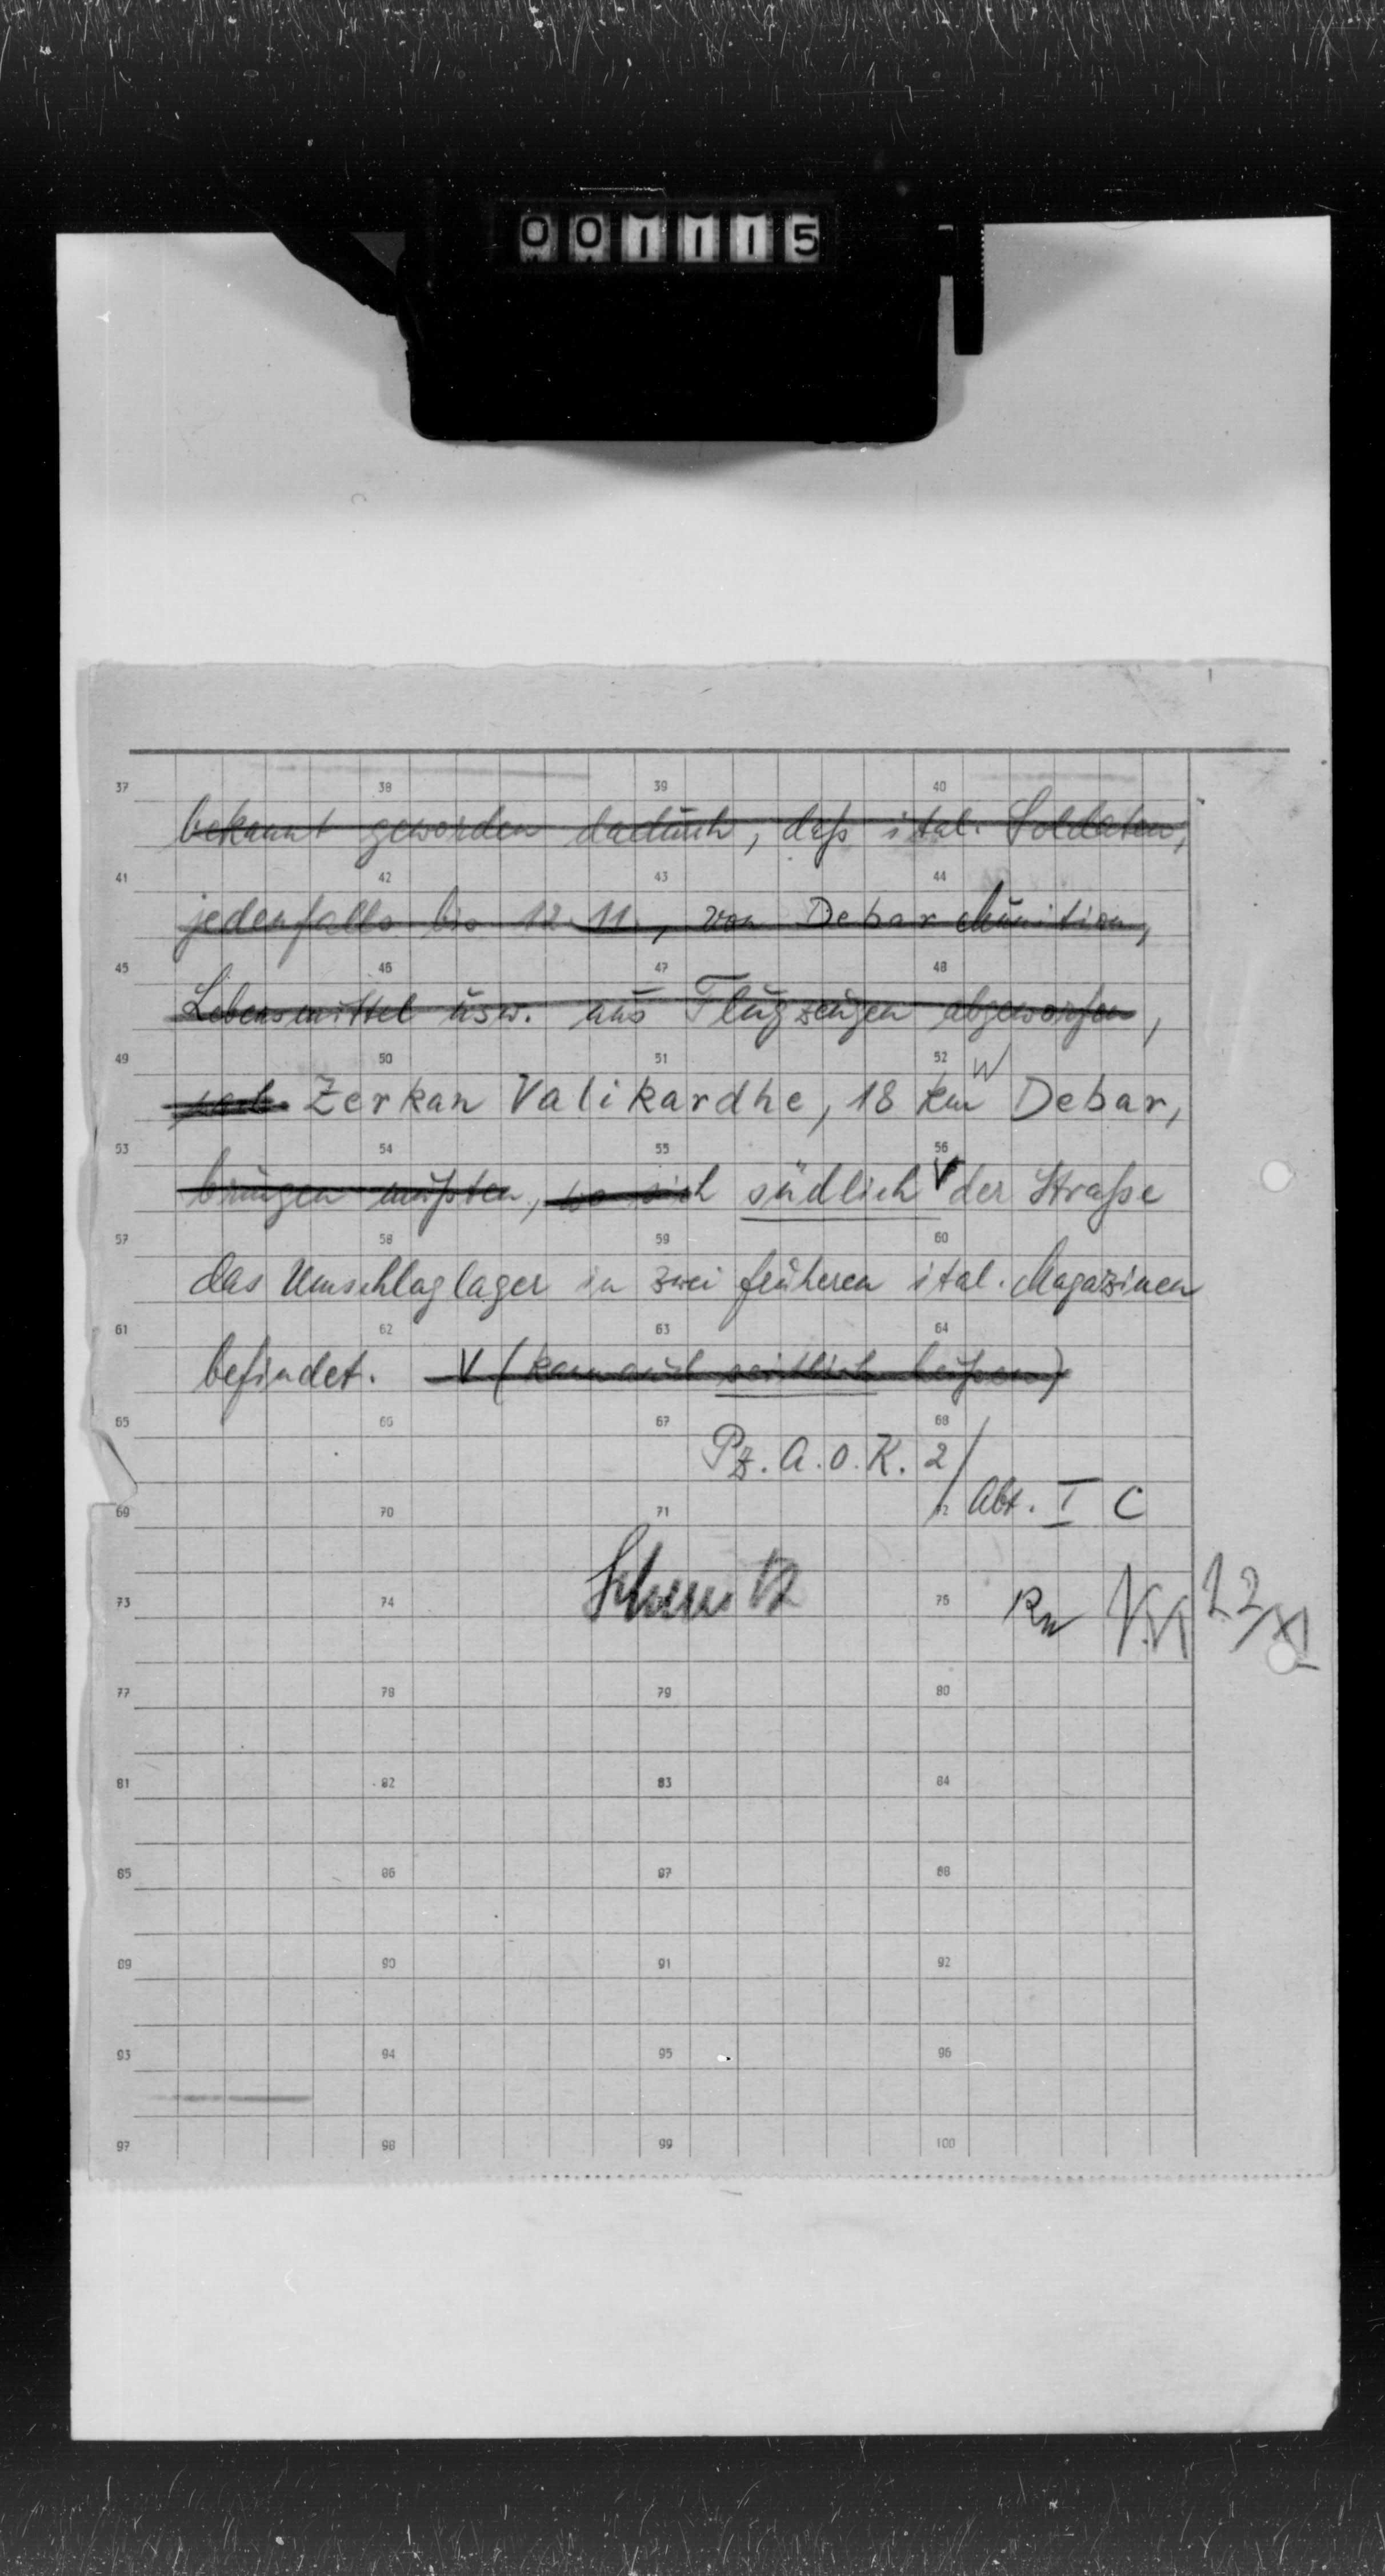 001115
37 38 39 40
bekannt geworden dadurch, daß ital. Soldaten,
41 42 43 44
jedenfalls bis 12.11., von Debar Munition,
45 46 47 48
Lebensmittel usw. aus Flugzeugen abgeworfen,
49 50 51 52 W
nach Zerkan Valikardhe, 18 km Debar,
53 54 55 56
bringen mußten, wo sich südlich V der Straße
57 58 59 60
das Umschlaglager in zwei früheren ital. Magazinen
61 62 63 64
befindet. V (kann auch seitlich heißen)
65 66 67 68
Pz. A. O. K. 2/
69 70 71 72 Abt. I C
73 74 76
22/XI
77 78 79 80
81 82 83 84
85 86 87 88
89 90 91 92
93 94 95 96
97 98 99 100